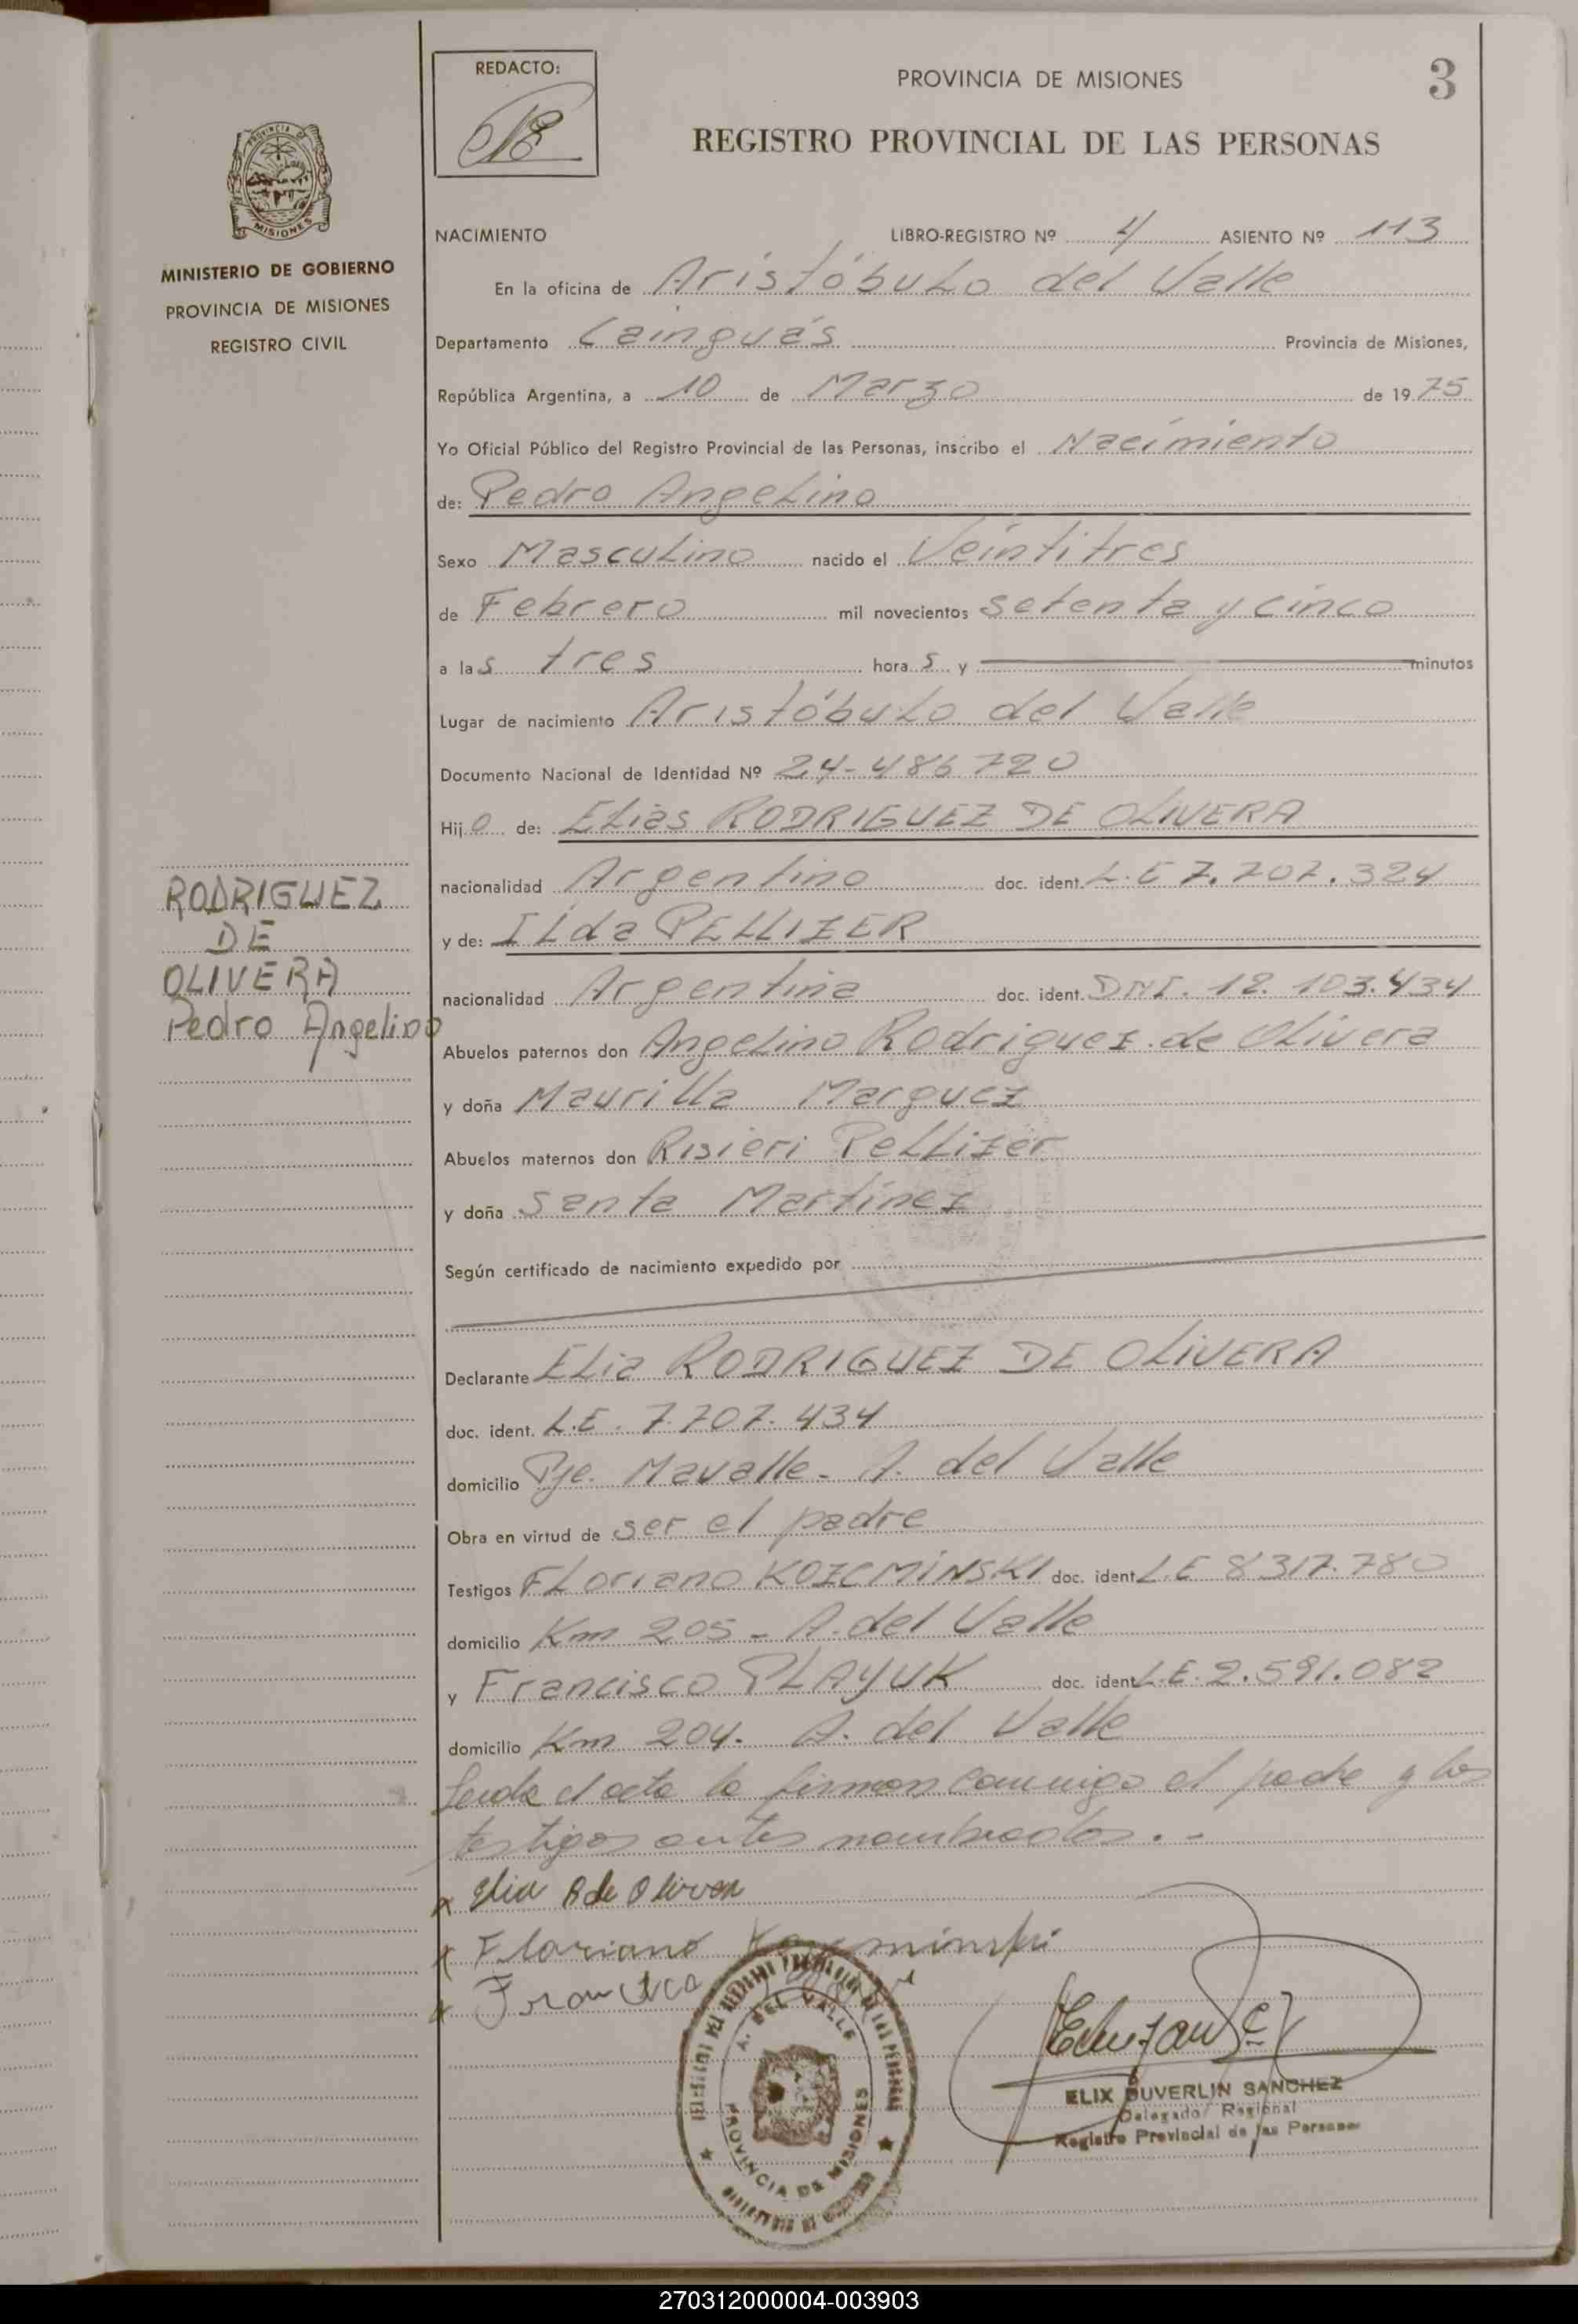 REDACTO:
PROVINCIA DE MISIONES
3
REGISTRO PROVINCIAL DE LAS PERSONAS
PROVINCIA DE
MISIONES
MINISTERIO DE GOBIERNO
PROVINCIA DE MISIONES
REGISTRO CIVIL
NACIMIENTO LIBRO-REGISTRO Nº 4 ASIENTO Nº 113
En la oficina de Aristóbulo del Valle
Departamento Cainguás Provincia de Misiones,
República Argentina, a 10 de Marzo de 1975
Yo Oficial Público del Registro Provincial de las Personas, inscribo el Nacimiento
de: Pedro Angelino
Sexo Masculino nacido el Veintitres
de Febrero mil novecientos setenta y cinco
a las tres horas y minutos
Lugar de nacimiento Aristóbulo del Valle
Documento Nacional de Identidad Nº 24-486720
Hijo de: Elias RODRIGUEZ DE OLIVERA
nacionalidad Argentino doc. ident. L.E 7.707.324
y de: Ilda PELLIZER
nacionalidad Argentina doc. ident. DNI. 12.103.434
Abuelos paternos don Angelino Rodriguez de Olivera
y doña Maurilla Marquez
Abuelos maternos don Risieri Pellizer
y doña Santa Martinez
Según certificado de nacimiento expedido por
Declarante Elia RODRIGUEZ DE OLIVERA
doc. ident. L.E. 7.707.434
domicilio Pje. Mavalle - A. del Valle
Obra en virtud de ser el padre
Testigos Floriano KOZCMINSKI doc. ident L.E 8317.780
domicilio Km 205 - A. del Valle
y Francisco PLAYUK doc. ident L.E. 2.591.082
domicilio Km 204. A. del Valle
Leida el acta la firman conmigo el padre y los
testigos antes nombrados.-
RODRIGUEZ
DE
OLIVERA
Pedro Angelino
x Elia R de Olivera
x Floriano
x Francisco
A. DEL VALLE
PROVINCIA DE MISIONES
ELIX DUVERLIN SANCHEZ
Delegado Regional
Registro Provincial de las Personas
270312000004-003903